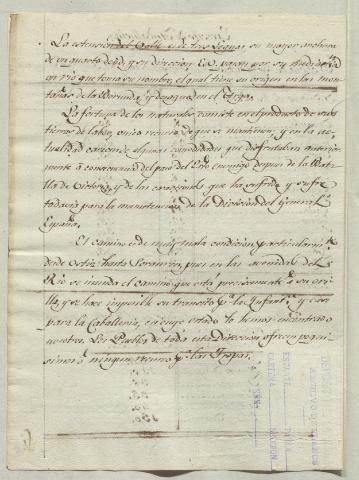 La estension del Valle es de tres leguas, su mayor anchura
de un quarto de id. y su direccion E.O. vagan por su medio
un rio que toma su nombre, el qual tiene su origen en las mon-
tañas de la Borunda, y desagua en el
La fortuna de los naturales consiste en el producto de sus
tierras de labor, unico recurso de que se mantienen, y en la ac-
tualidad carecen de algunas comodidades que disfrutaban anterior-
mente á consecuencia del paso del Exto enemigo despues de la Bata-
lla de Victoria, y de las exacciones que ha sufrido y sufre
todavia para la manutencion de la Division del General
España.
El camino es de muy mala condicion particularmte
desde hasta pues en las avenidas del
Rio se inunda el camino que está precisamente á su ori-
lla, y se hace imposible su transito pa la Infanta y casi
para la Caballeria, en cuyo estado lo hemos encontrado
nosotros. Los Pueblos de toda esta Direccion ofrecen poqui-
simo ó ningun recurso pa las Tropas.